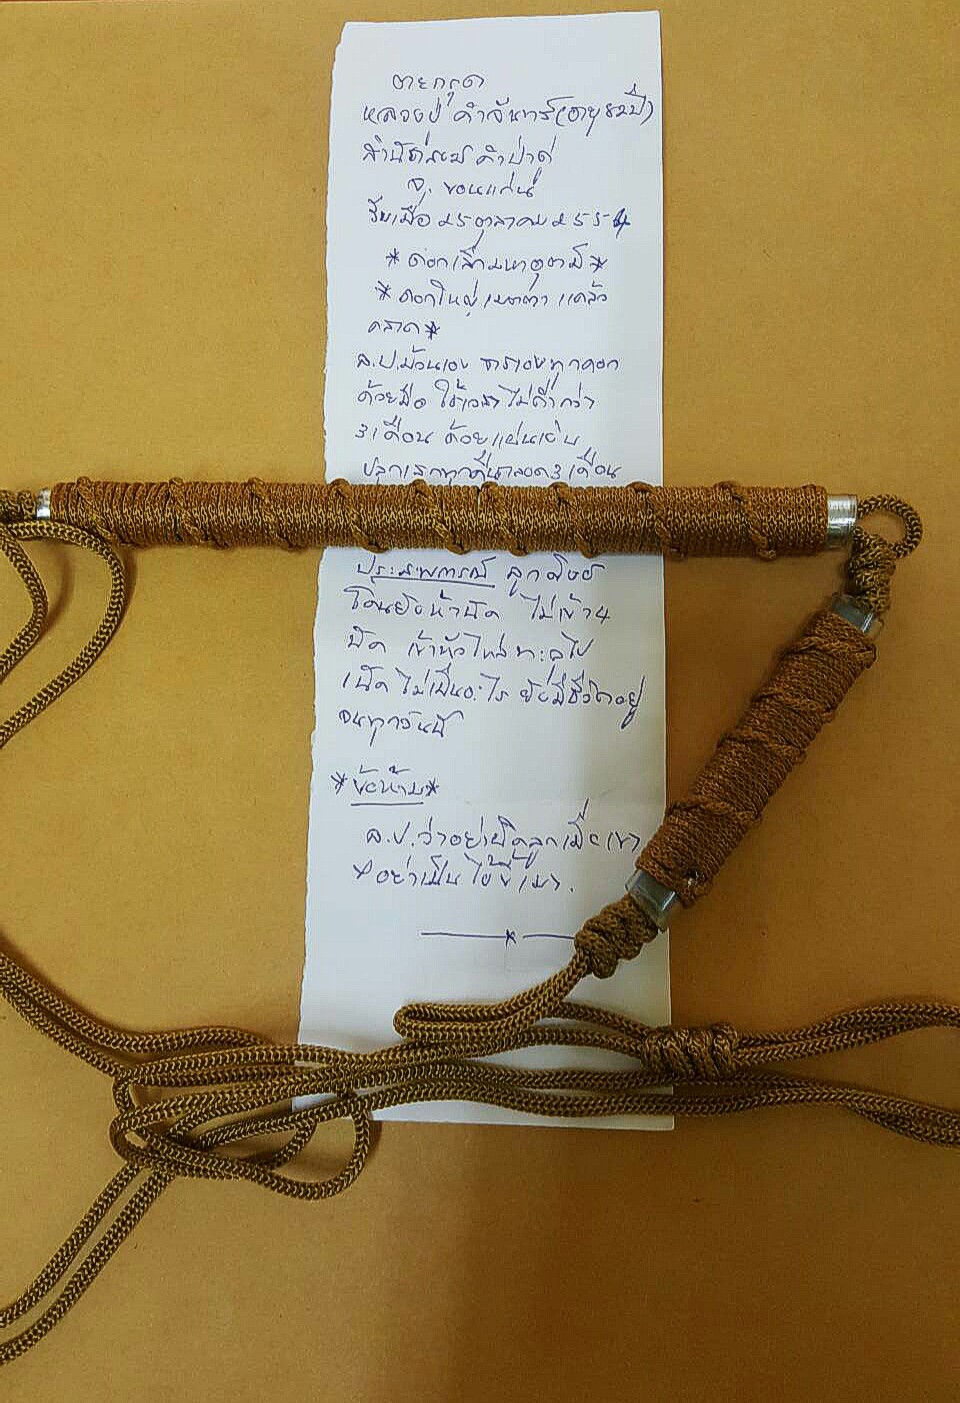 ตะกรุด
หลวงปู่ คำจันทร์(อายุ ๘๒ปี)
สำนักสงฆ์ คำป่า
จ. ขอนแก่น
รับเมื่อ ๒๕ ตุลาคม ๒๕๕๔
*ดอกเล็กมหาอุตม์*
*ดอกใหญ่ เมตตา แคล้ว
คลาด*
ล.ป.ม้วนเอง จารเองทุกดอก
ด้วยมือ ใช้เวลา ไม่ต่ำกว่า
3 เดือน ด้วยแผ่น
ปลุกเสกทุกคืนตลอด 3 เดือน
ประสพการณ์ ลูกศิษย์
โดนยิงห้านัด ไม่เข้า 4
นัด เข้าหัวไหล่ทะลุไป
1 นัด ไม่เป็นอะไร ยังมีชีวิตอยู่
จนทุกวันนี้
*ข้อห้าม*
ล.ป.ว่าอย่าผิดลูกเมียเขา
อย่าเป็น ไอ้ขี้เมา.